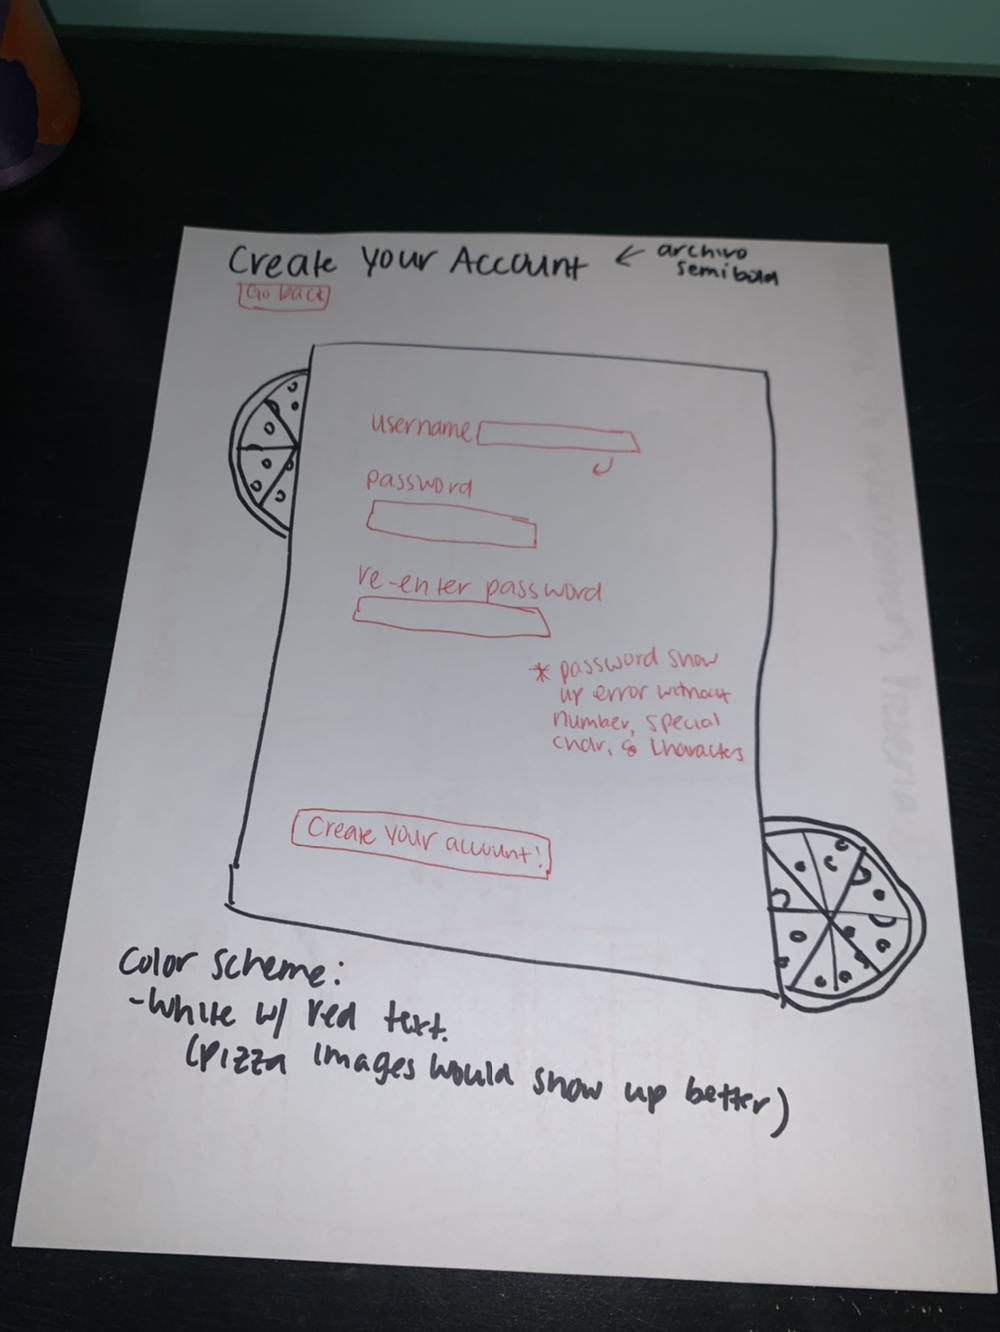 Create Your Account ← archivo
semibold
Go back
username
password
re-enter password
* password show
up error without
number, special
char, & characters
Create your account!
Color scheme:
- White w/ red text.
(pizza images would show up better)